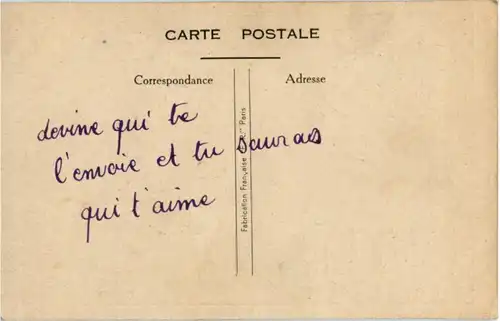 CARTE POSTALE
Correspondance
Adresse
devine qui te
l'envoie et tu sauras
qui t'aime
Fabrication Française Paris